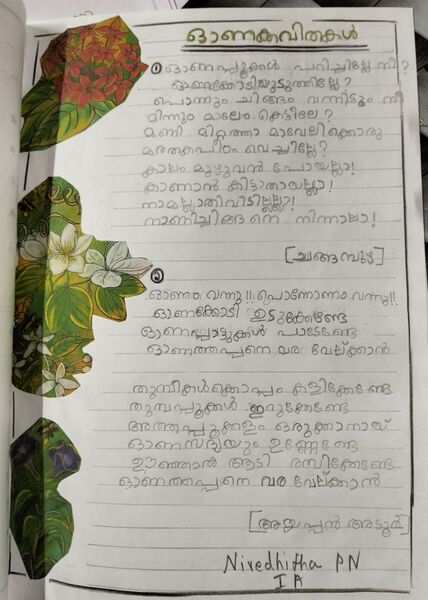 ഓണക്കവിതകൾ
① ഓണപ്പൂക്കൾ പറിച്ചില്ലേ നീ?
ഓണക്കോടിയുടുത്തില്ലേ?
പൊന്നും ചിങ്ങം വന്നിട്ടും നീ
മിന്നും മാലേം കെട്ടീലേ?
മണി മിറ്റത്താ മാവേലിക്കൊരു
മരതകപീഠം വെച്ചില്ലേ?
കാലം മുഴുവൻ പോയല്ലാ!
കാണാൻ കിട്ടാതായല്ലാ!
നാമല്ലാതിവിടില്ലല്ലാ!
നാണിച്ചിങ്ങനെ നിന്നാലാ!
[ചങ്ങമ്പുഴ]
②
ഓണം വന്നു!! പൊന്നോണം വന്നു!!
ഓണക്കോടി ഉടുക്കേണ്ടേ
ഓണപ്പാട്ടുകൾ പാടേണ്ടേ
ഓണത്തപ്പനെ വര വേല്ക്കാൻ
തുമ്പികൾക്കൊപ്പം കളിക്കേണ്ടേ
തുമ്പപ്പൂക്കൾ ഇറുക്കേണ്ടേ
അത്തപ്പൂക്കളം ഒരുക്കാനായ്
ഓണസദ്യയും ഉണ്ണേണ്ടേ
ഊഞ്ഞാൽ ആടി രസിക്കേണ്ടേ
ഓണത്തപ്പനെ വര വേല്ക്കാൻ
[അയ്യപ്പൻ അടൂർ]
Nivedhitha PN
IA